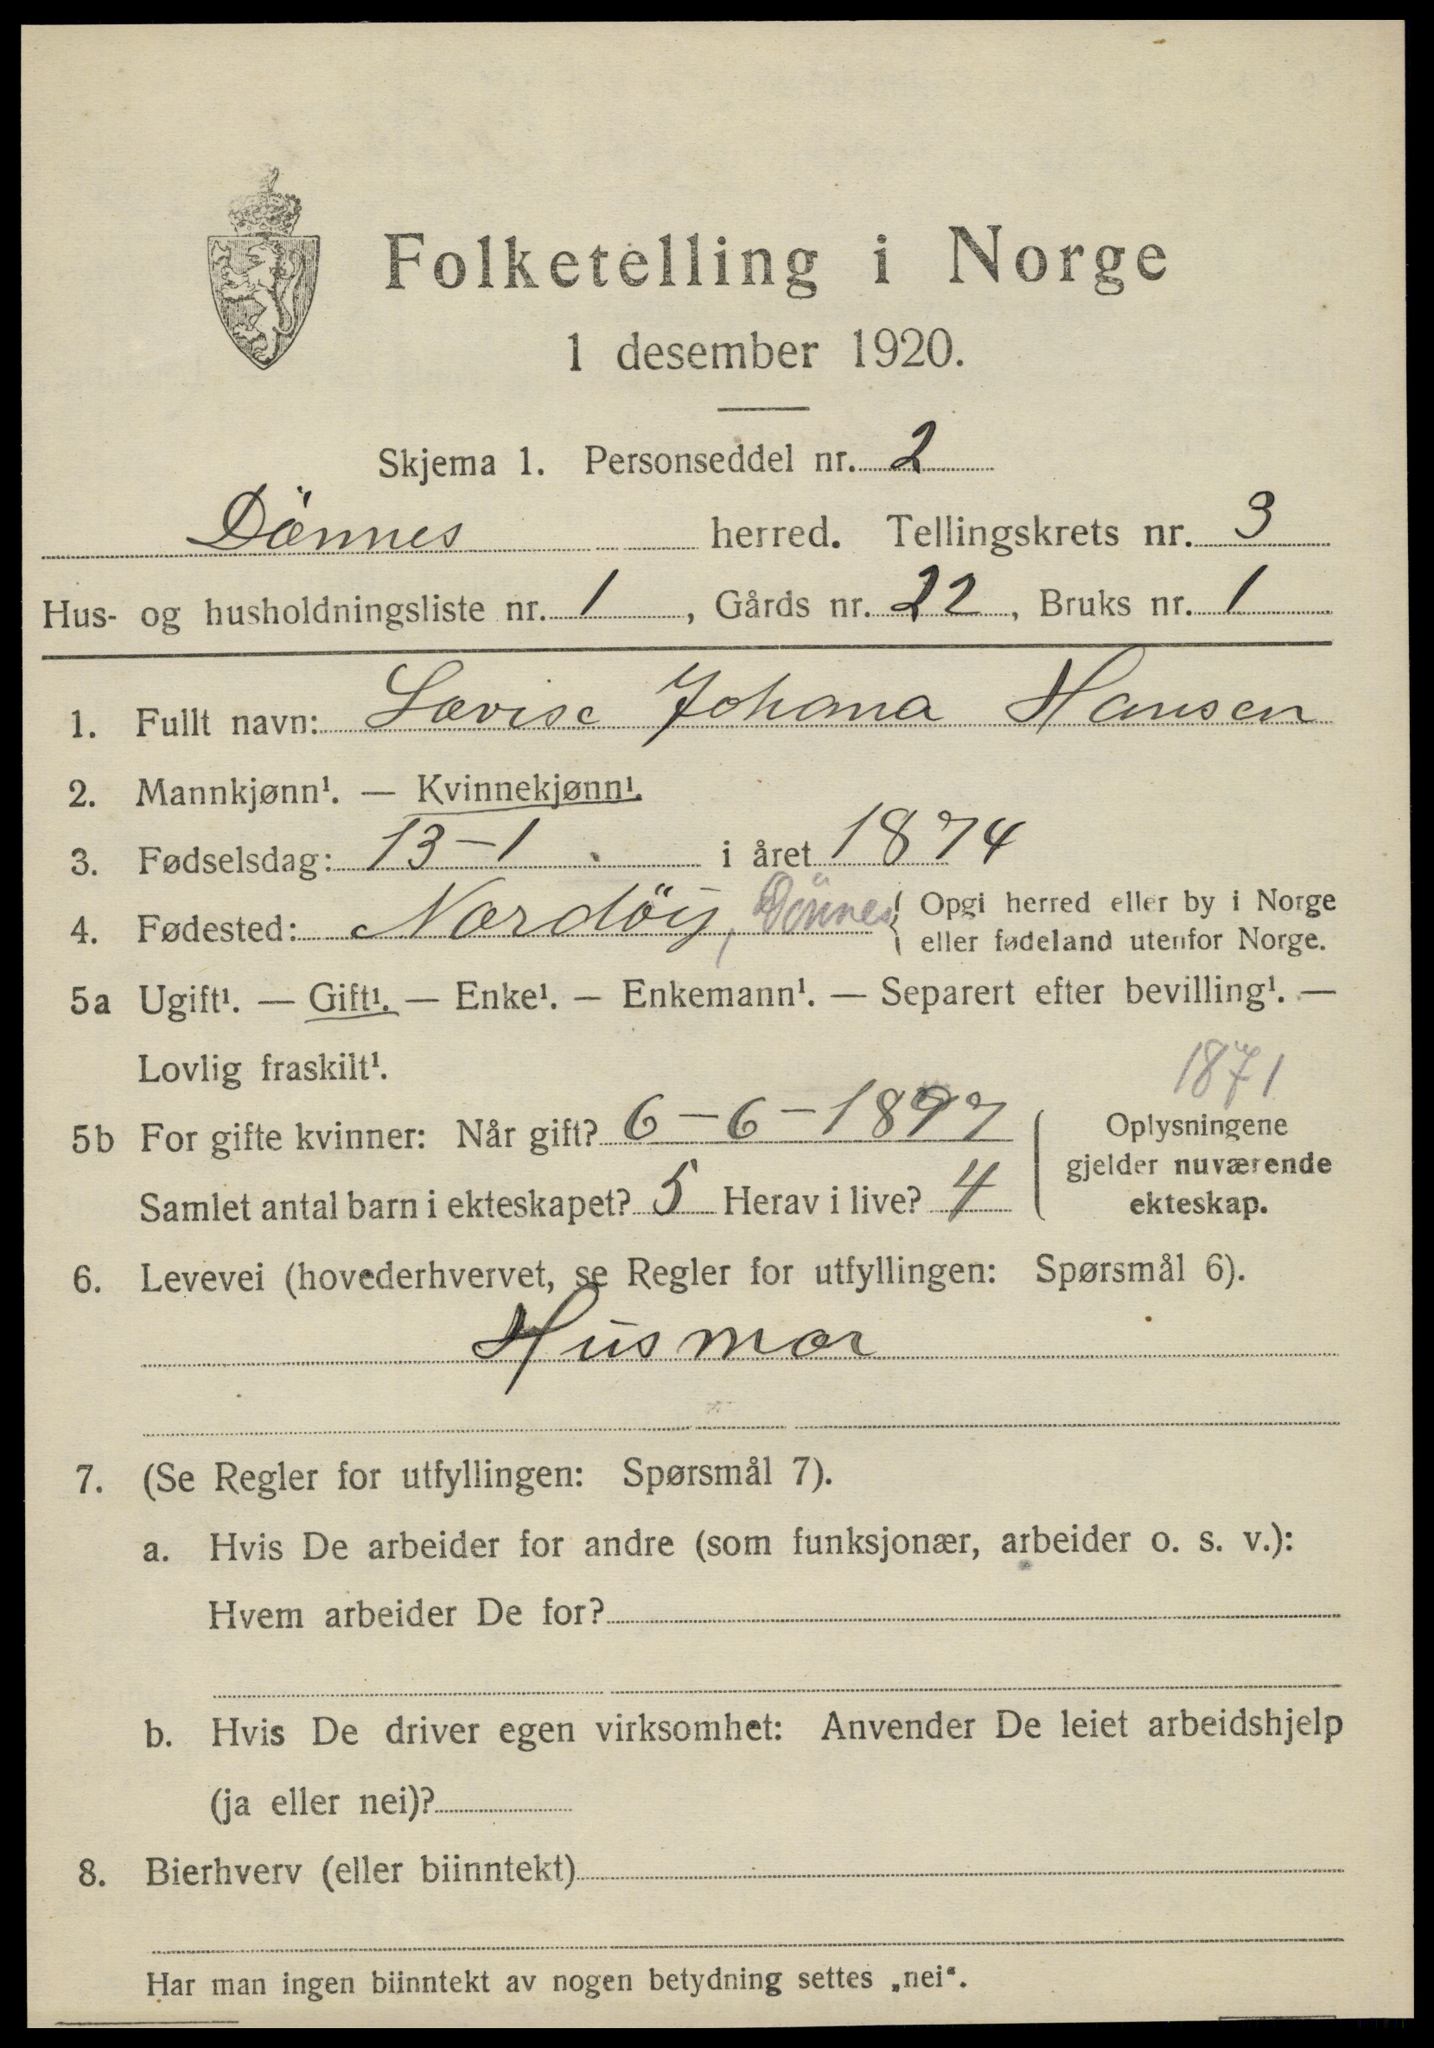 Folketelling i Norge
1 desember 1920.
Skjema 1. Personseddel nr. 2
Dönnes herred. Tellingskrets nr. 3
Hus- og husholdningsliste nr. 1, Gårds nr. 22, Bruks nr. 1
1. Fullt navn: Lovise Johana Hansen
2. Mannkjønn¹. — Kvinnekjønn¹.
3. Fødselsdag: 13-1. i året 1874
4. Fødested: Nordöy, Dönnes { Opgi herred eller by i Norge
eller fødeland utenfor Norge.
5a Ugift¹. — Gift¹. — Enke¹. — Enkemann¹. — Separert efter bevilling¹. —
Lovlig fraskilt¹.
1871
5b For gifte kvinner: Når gift? 6-6-1897
Samlet antal barn i ekteskapet? 5 Herav i live? 4
Oplysningene
gjelder nuværende
ekteskap.
6. Levevei (hovederhvervet, se Regler for utfyllingen: Spørsmål 6).
Husmor
7. (Se Regler for utfyllingen: Spørsmål 7).
a. Hvis De arbeider for andre (som funksjonær, arbeider o. s. v.):
Hvem arbeider De for?
b. Hvis De driver egen virksomhet: Anvender De leiet arbeidshjelp
(ja eller nei)?
8. Bierhverv (eller biinntekt)
Har man ingen biinntekt av nogen betydning settes „nei“.